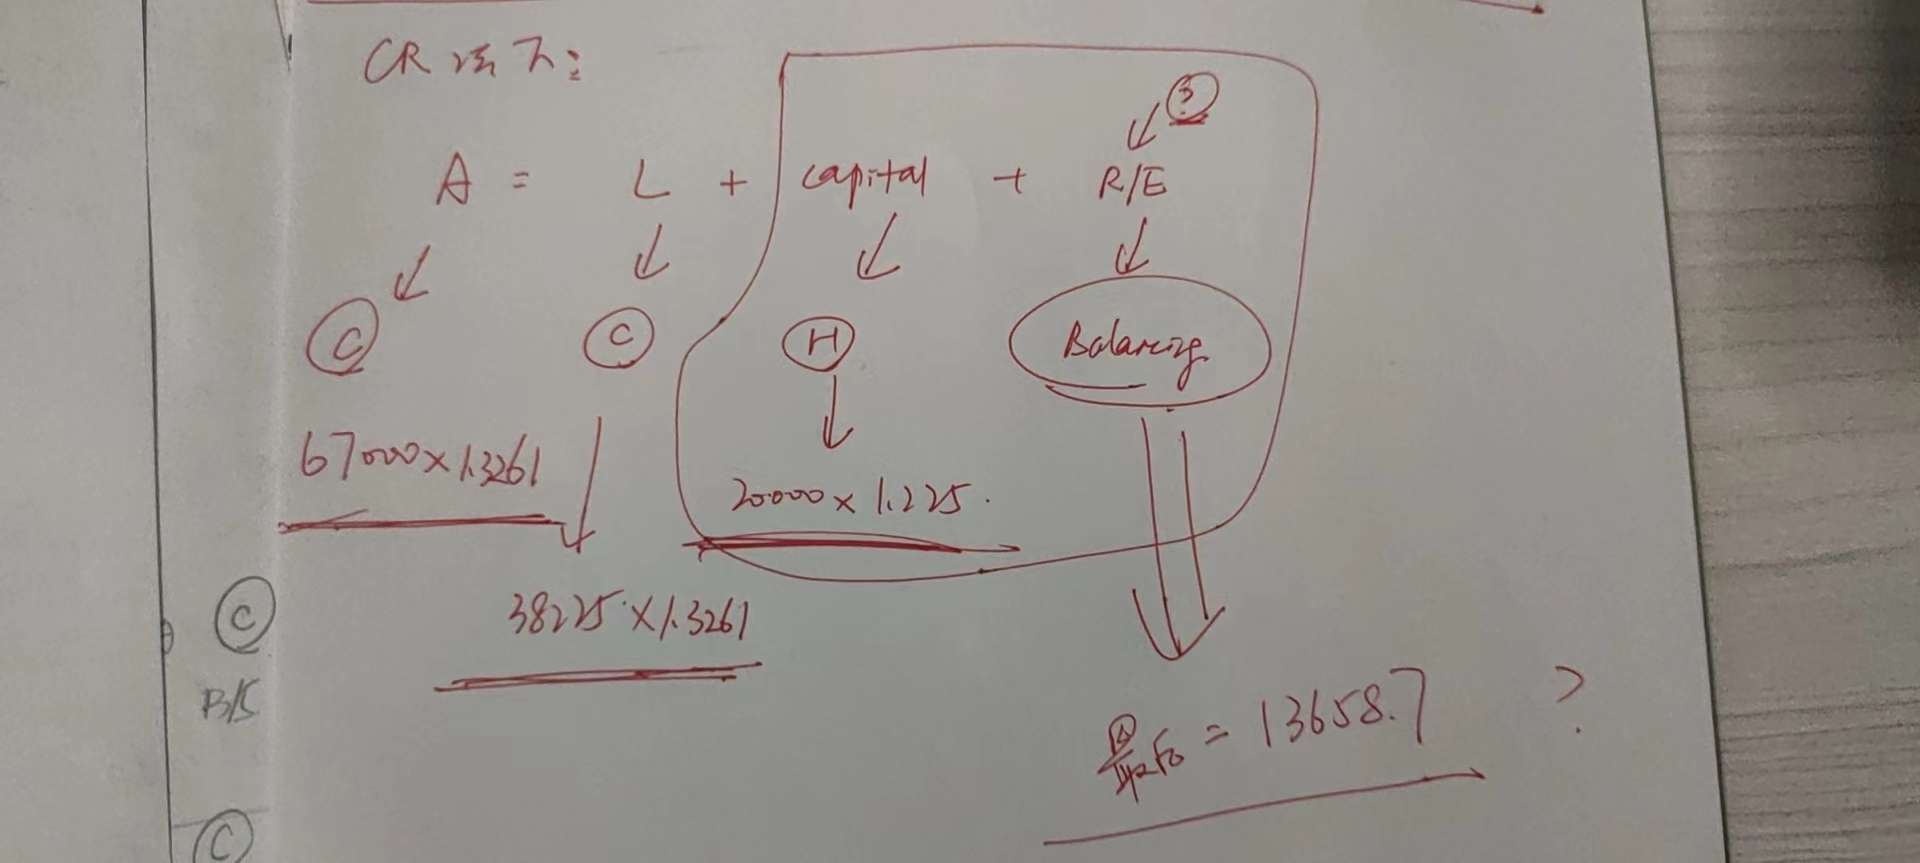 CR 法下:
③
A = L + capital + R/E
Ⓒ Ⓒ Ⓗ Balancing
67000×1.3261
20000×1.225.
38225×1.3261
Ⓒ
B/S
最后 = 13658.7 ?
Ⓒ